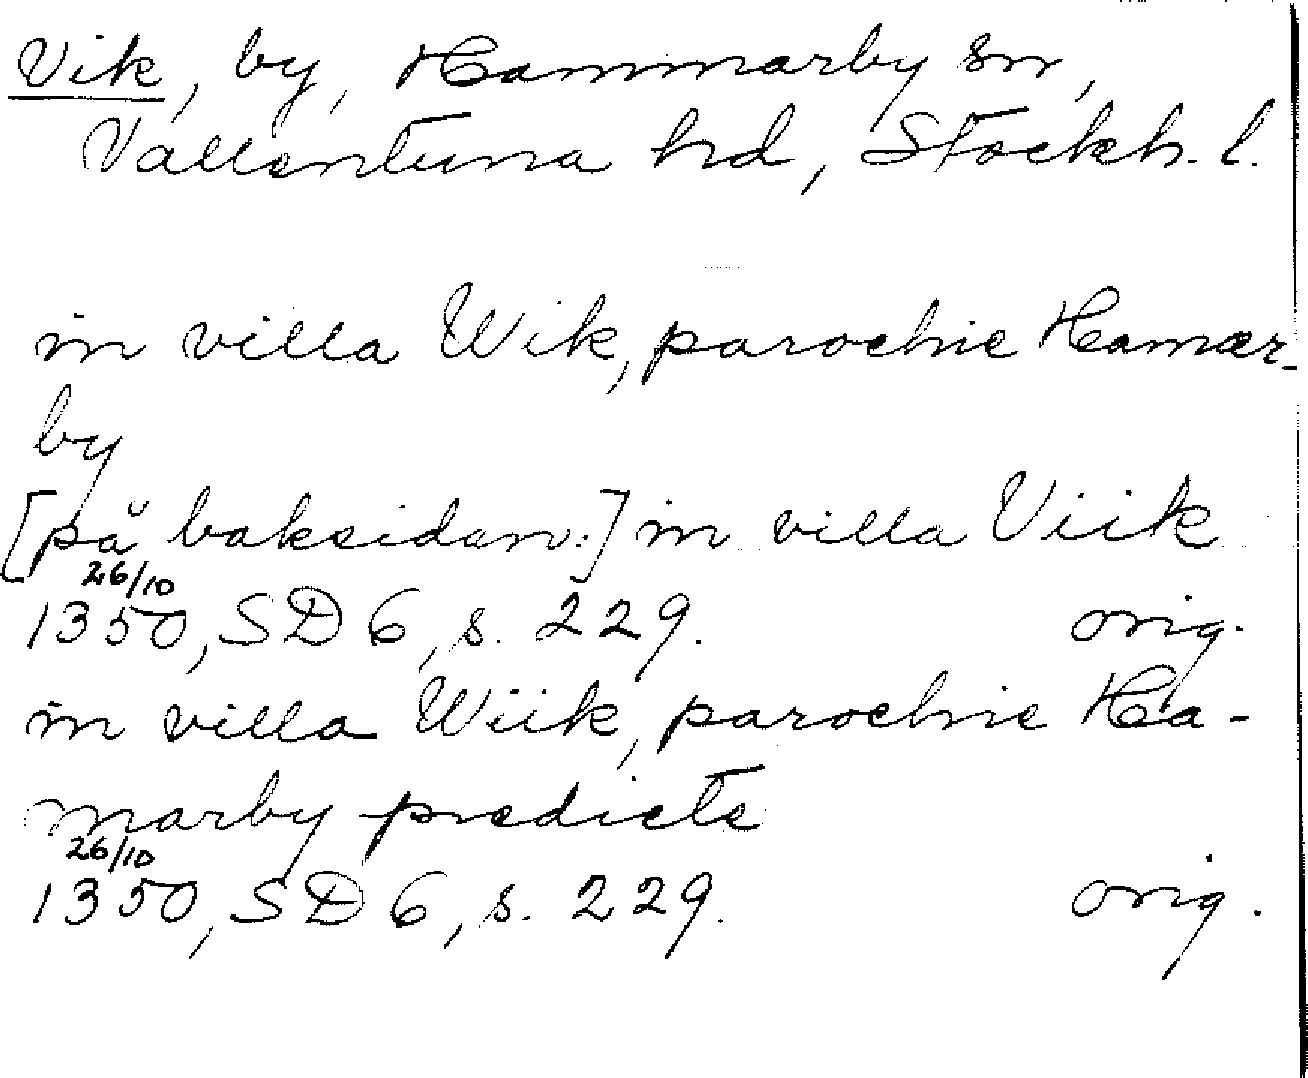 Vik, by, Hammarby sn,
Vallentuna hd, Stockh. l.
in villa Wik, parochie Hamær-
by
[på baksidan:] in villa Viik
26/10
1350, SD 6, s. 229. orig.
in villa Wiik, parochie Ha-
marby predicte
26/10
1350, SD 6, s. 229. orig.